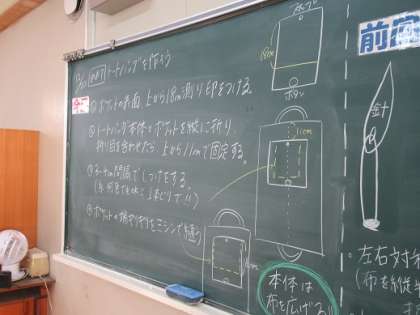 トートバッグを作ろう
① ポケットの表面、上から18cm測り、印をつける。
② トートバッグ本体とポケットを縦に折り、
折り目を合わせたら、上から11cmで固定する。
③ 3〜4cm間隔でしつけをする。
④ ポケットの端ギリギリをミシンで縫う
18cm
ボタン
11cm
本体は
布を広げる!!
前回
針
・左右対
(布を縦